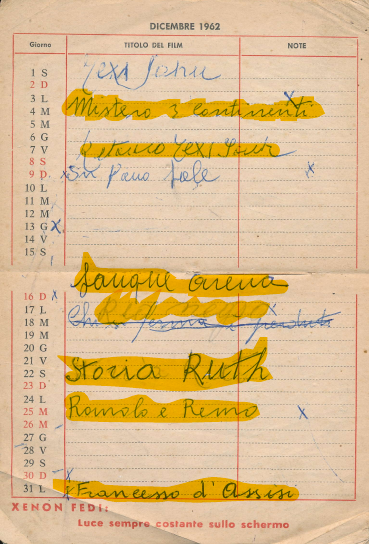 DICEMBRE 1962
Giorno TITOLO DEL FILM NOTE
1 S
2 D
3 L
4 M Mistero 3 continenti x
5 M
6 G
7 V
8 S
9 D x x
10 L
11 M
12 M
13 G x
14 V
15 S
Sangue arena
16 D x
17 L x
18 M
19 M
20 G
21 V
22 S Storia Ruth
23 D
24 L
25 M Romolo e Remo x
26 M
27 G
28 V
29 S
30 D x
31 L x Francesco d'Assisi
XENON FEDI:
Luce sempre costante sullo schermo